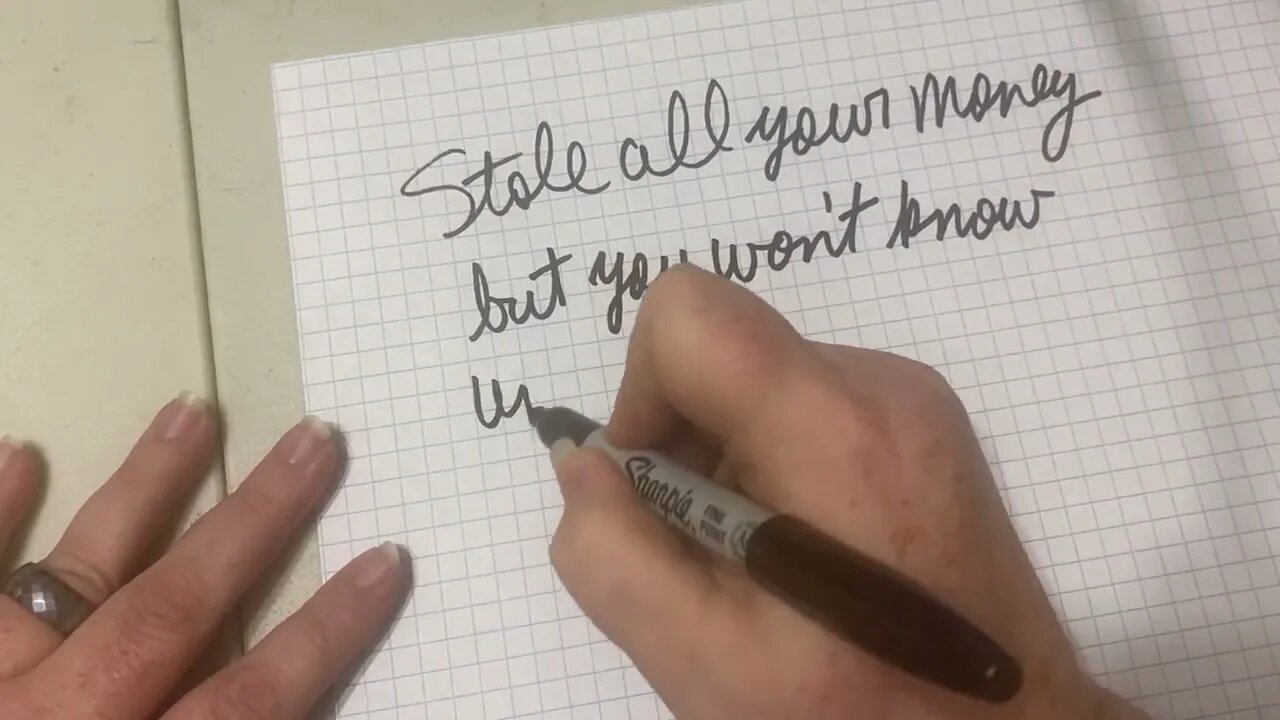 Stole all your money
but you won't know
Sharpie
FINE
POINT